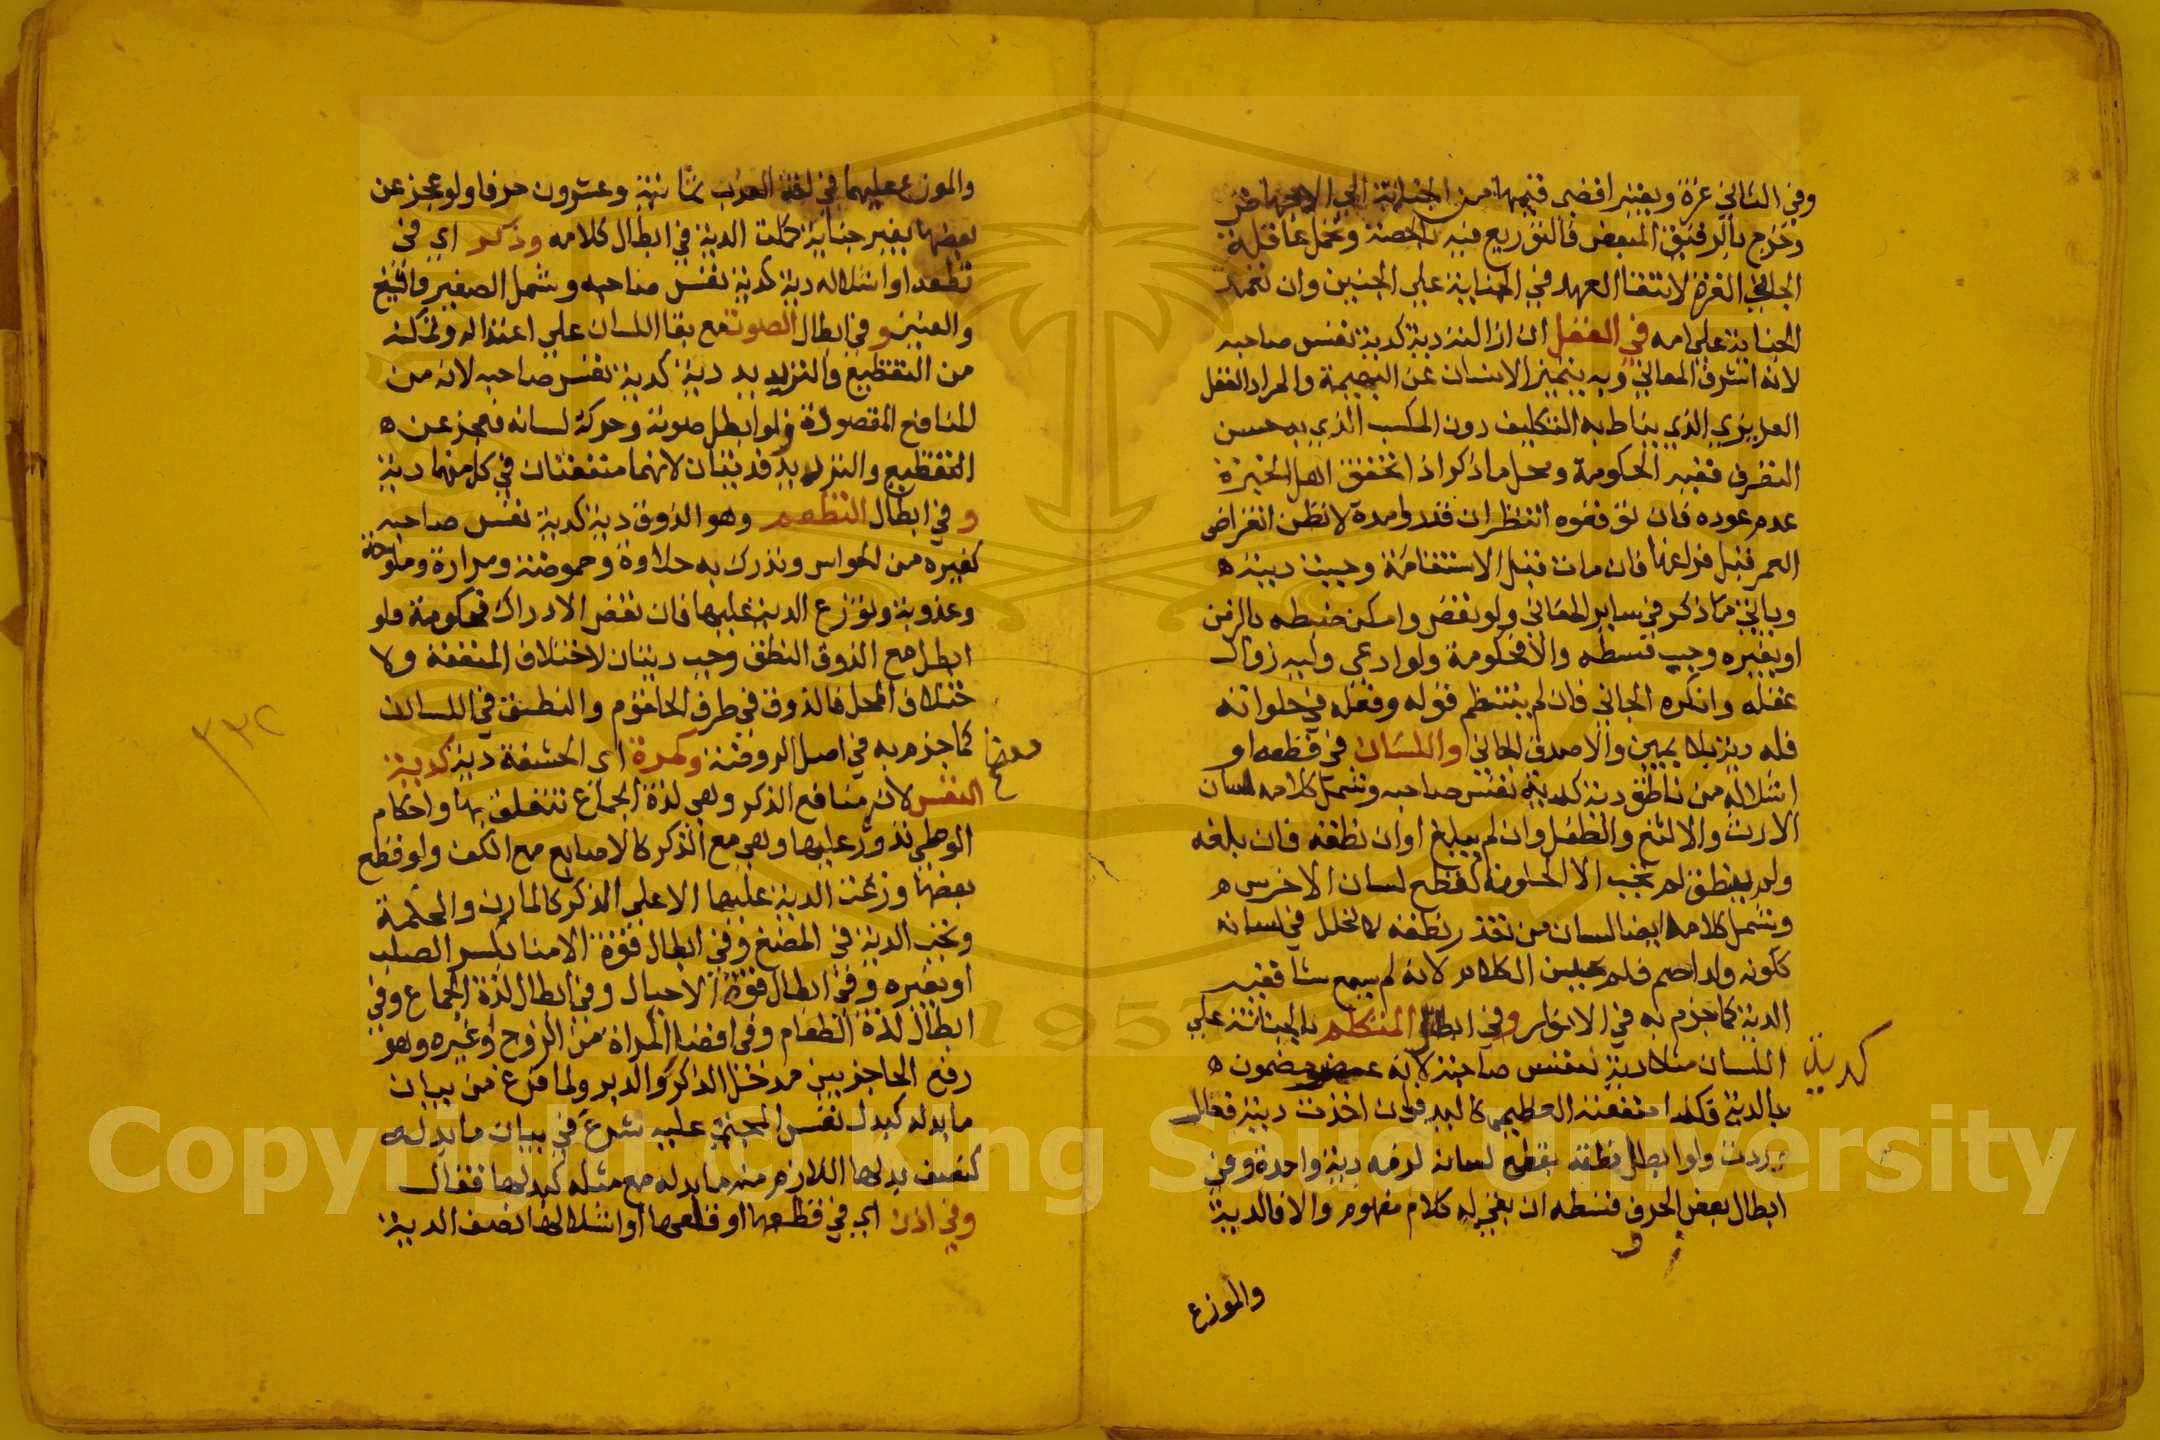 وفي الثاني غرة ويعتبر اقصى قيمها من الجناية الى الاجهاض
وخرج بالرقيق المبعض فالتوزيع فيه بالحصة وتحمل عاقلة
الجاني الغرة لانتفا العمد في الجناية على الجنين وان تعمد
الجناية على امه في العقل ان ازالته دية كدية نفس صاحبه
لانه اشرف المعاني وبه يتميز الانسان عن البهيمة والمراد العقل
الغريزي الذي يناط به التكليف دون المكسب الذي به حسن
التصرف ففيه الحكومة ومحل ما ذكر اذا تحقق اهل الخبرة
عدم عوده فان توقعوه انتظر ان قدروا مدة لا تظن انقراض
العمر قبل فراغها فان مات قبل الاستقامة وجبت ديته ه
وياتي ما ذكر في ساير المعاني ولو نقص وامكن ضبطه بالزمن
او بغيره وجب قسطه والا فحكومة ولو ادعى وليه زوال
عقله وانكره الجاني فان لم ينتظم قوله وفعله في خلواته
فله دية بلا يمين والا صدق الجاني واللسان في قطعه او
اشلاله من ناطق دية كدية نفس صاحبه وشمل كلامه لسان
الارت والالثغ والطفل وان لم يبلغ اوان نطقه فان بلغه
ولم ينطق لم تجب الا الحكومة كقطع لسان الاخرس ه
وشمل كلامه ايضا لسان من تعذر نطقه لا لخلل في لسانه
ككونه ولد اصم فلم يحسن الكلام لانه لم يسمع شيا ففيه
الدية كما جزم به في الانوار وفي ابطال المتكلم بالجناية على
اللسان مثلا دية لنفس صاحبه لانه عضو مضمون ه
كدية
بالدية فكذا منفعته العظيمى كاليد فان اخذت دية فعاد
ردت ولو ابطل نطقه بقطع لسانه لزمه دية واحدة وفي
ابطال بعض الحرف قسطه ان بقي له كلام مفهوم والا فالدية
والموزع
والموزع عليهما في لغة العرب ثمانية وعشرون حرفا ولو عجز عن
بعضها بغير جناية كملت الدية في ابطال كلامه وذكر اي في
قطعه او اشلاله دية كدية نفس صاحبه وشمل الصغير والشيخ
والعنين وفي ابطال الصوت مع بقا اللسان على اعتداله وتمكنه
من التقطيع والترديد دية كدية نفس صاحبه لانه من
المنافع المقصودة ولو ابطل صوته وحركة لسانه فعجز عن ه
التقطيع والترديد فديتان لانهما منفعتان في كل منهما دية
وفي ابطال التطعم وهو الذوق دية كدية نفس صاحبه
كغيره من الحواس وتدرك به حلاوة وحموضة ومرارة وملوحة
وعذوبة وتوزع الدية عليها فان نقص الادراك فحكومة ولو
ابطل مع الذوق النطق وجب ديتان لاختلاف المنفعة ولا
ختلاف المحل فالذوق في طرف الحلقوم والنطق في اللسان
كما جزم به في اصل الروضة وكمرة اي الحشفة دية كدية
معظم
النفس لانه منافع الذكر وهي لذة الجماع تتعلق بها واحكام
الوطي تدور عليها وهي مع الذكر كالاصابع مع الكف ولو قطع
بعضها وزعت الدية عليها لا على الذكر كالمارن والحلمة
وتجب الدية في المضغ وفي ابطال قوة الامنا بكسر الصلب
او بغيره وفي ابطال قوة الاحبال وفي ابطال لذة الجماع وفي
ابطال لذة الطعام وفي افضا المراة من الزوج او غيره وهو
رفع الحاجز بين مدخل الذكر والدبر ولما فرغ من بيان
ما بدله كبدل نفس المجني عليه شرع في بيان ما بدله
كنصف بدلها اللازم منه ما بدله مع مثله كبدلها فقال
وفي اذن اي في قطعها او قلعها او اشلالها نصف الدية
٣٣٢
Copyright © King Saud University
1957